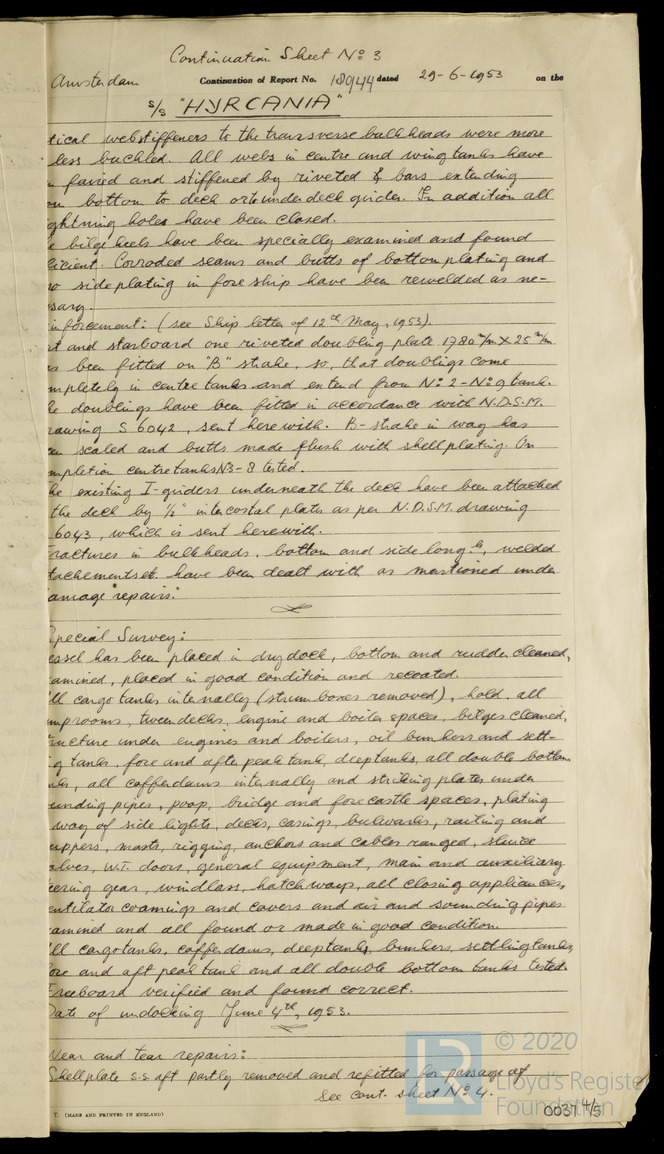 Continuation Sheet No 3
Amsterdam Continuation of Report No. 18944 dated 29-6-1953 on the
s/s "HYRCANIA"
tical webstiffeners to the transverse bulkheads were more
less buckled. All webs in centre and wingtanks have
faired and stiffened by riveted bars extending
bottom to deck or to underdeck girder. In addition all
ghtning holes have been closed.
e bilge keels have been specially examined and found
icient. Corroded seams and butts of bottom plating and
so sideplating in foreship have been rewelded as ne-
sary.
inforcement: (see Ship letter of 12th May, 1953).
rt and starboard one riveted doubling plate 1780 m/m X 25 m/m
s been fitted on "B" strake, so, that doublings come
mpletely in centre tanks and extend from No 2 - No 9 tank.
he doublings have been fitted in accordance with N.D.S.M.
rawing S 6042, sent herewith. B-strake in way has
en scaled and butts made flush with shellplating. On
mpletion centretanks N3-8 tested.
he existing I-griders underneath the deck have been attached
the deck by 1/2" intercostal plats as per N.D.S.M. drawing
6043, which is sent herewith.
ractures in bulkheads, bottom and side long.ls, welded
tachements etc. have been dealt with as mentioned under
amage repairs."
pecial Survey:
essel has been placed in drydock, bottom and rudder cleaned,
amined, placed in good condition and recoated.
ll cargo tanks internally (strum boxes removed), hold, all
mprooms, tween decks, engine and boiler spaces, bilges cleaned,
ructure under engines and boilers, oil bunkers and sett-
g tanks, fore and after peak tank, deeptanks, all double bottom
nks, all cofferdams internally and striking plates under
unding pipes, poop, bridge and forecastle spaces, plating
way of side lights, decks, casings, bulwarks, railing and
uppers, masts, rigging, anchors and cables ranged, sluice
alves, W.T. doors, general equipment, main and auxiliary
eering gear, windlass, hatchways, all closing appliances,
entilator coamings and covers and air and sounding pipes
amined and all found or made in good condition.
ll cargotanks, cofferdams, deeptanks, bunkers, settlingtanks,
ore and aft peak tank and all double bottom tanks tested.
Freeboard verified and found correct.
Date of undocking June 4th, 1953.
Wear and tear repairs:
Shellplate s.s. aft partly removed and refitted for passage of
See cont. sheet No 4.
T. (MADE AND PRINTED IN ENGLAND)
0037 4/5
© 2020
LR
Lloyd's Register
Foundation